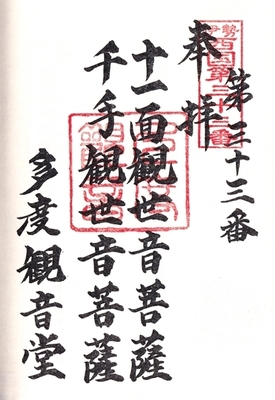 伊勢西国第三十三番
第三十三番
奉拝
十一面観世音菩薩
千手観世音菩薩
多度観音堂